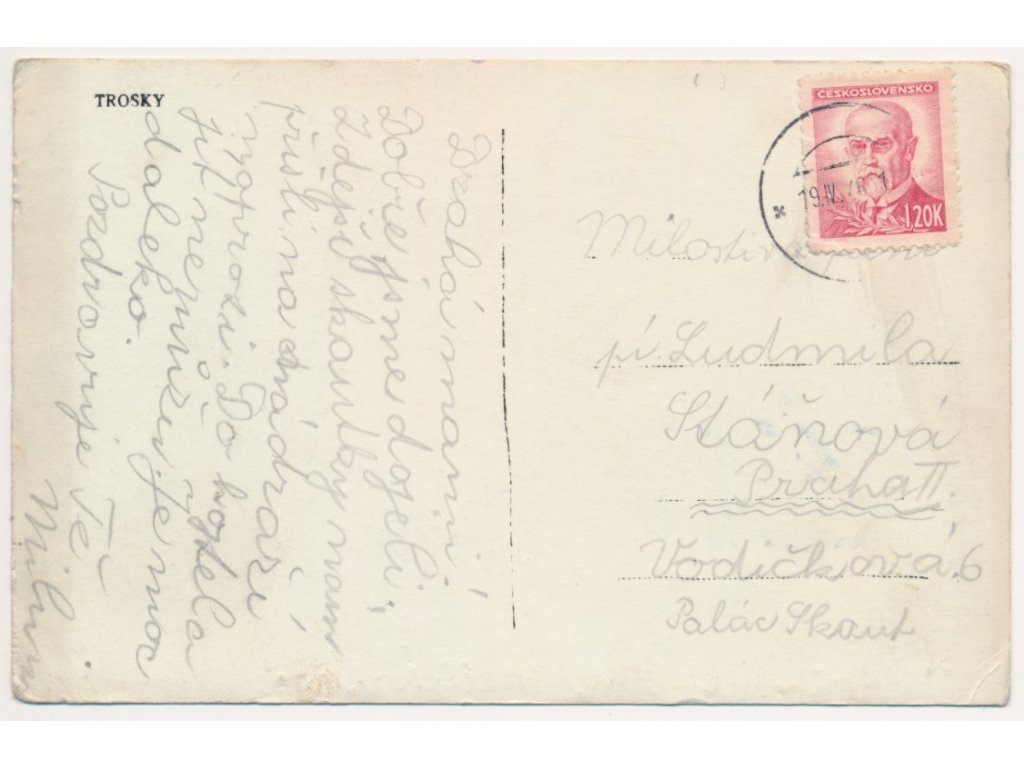 TROSKY
Drahá mami,
Dobře jsme dojeli.
Zdejší skautky nám
přišli na nádraží
naproti. Do hotelu
jít nemůžu je moc
daleko.
Pozdravuje Tě
ČESKOSLOVENSKO
1,20K
19.IV.
Milostivá paní
pí. Ludmila
Stáňová
Praha II.
Vodičková 6
Palác Skaut